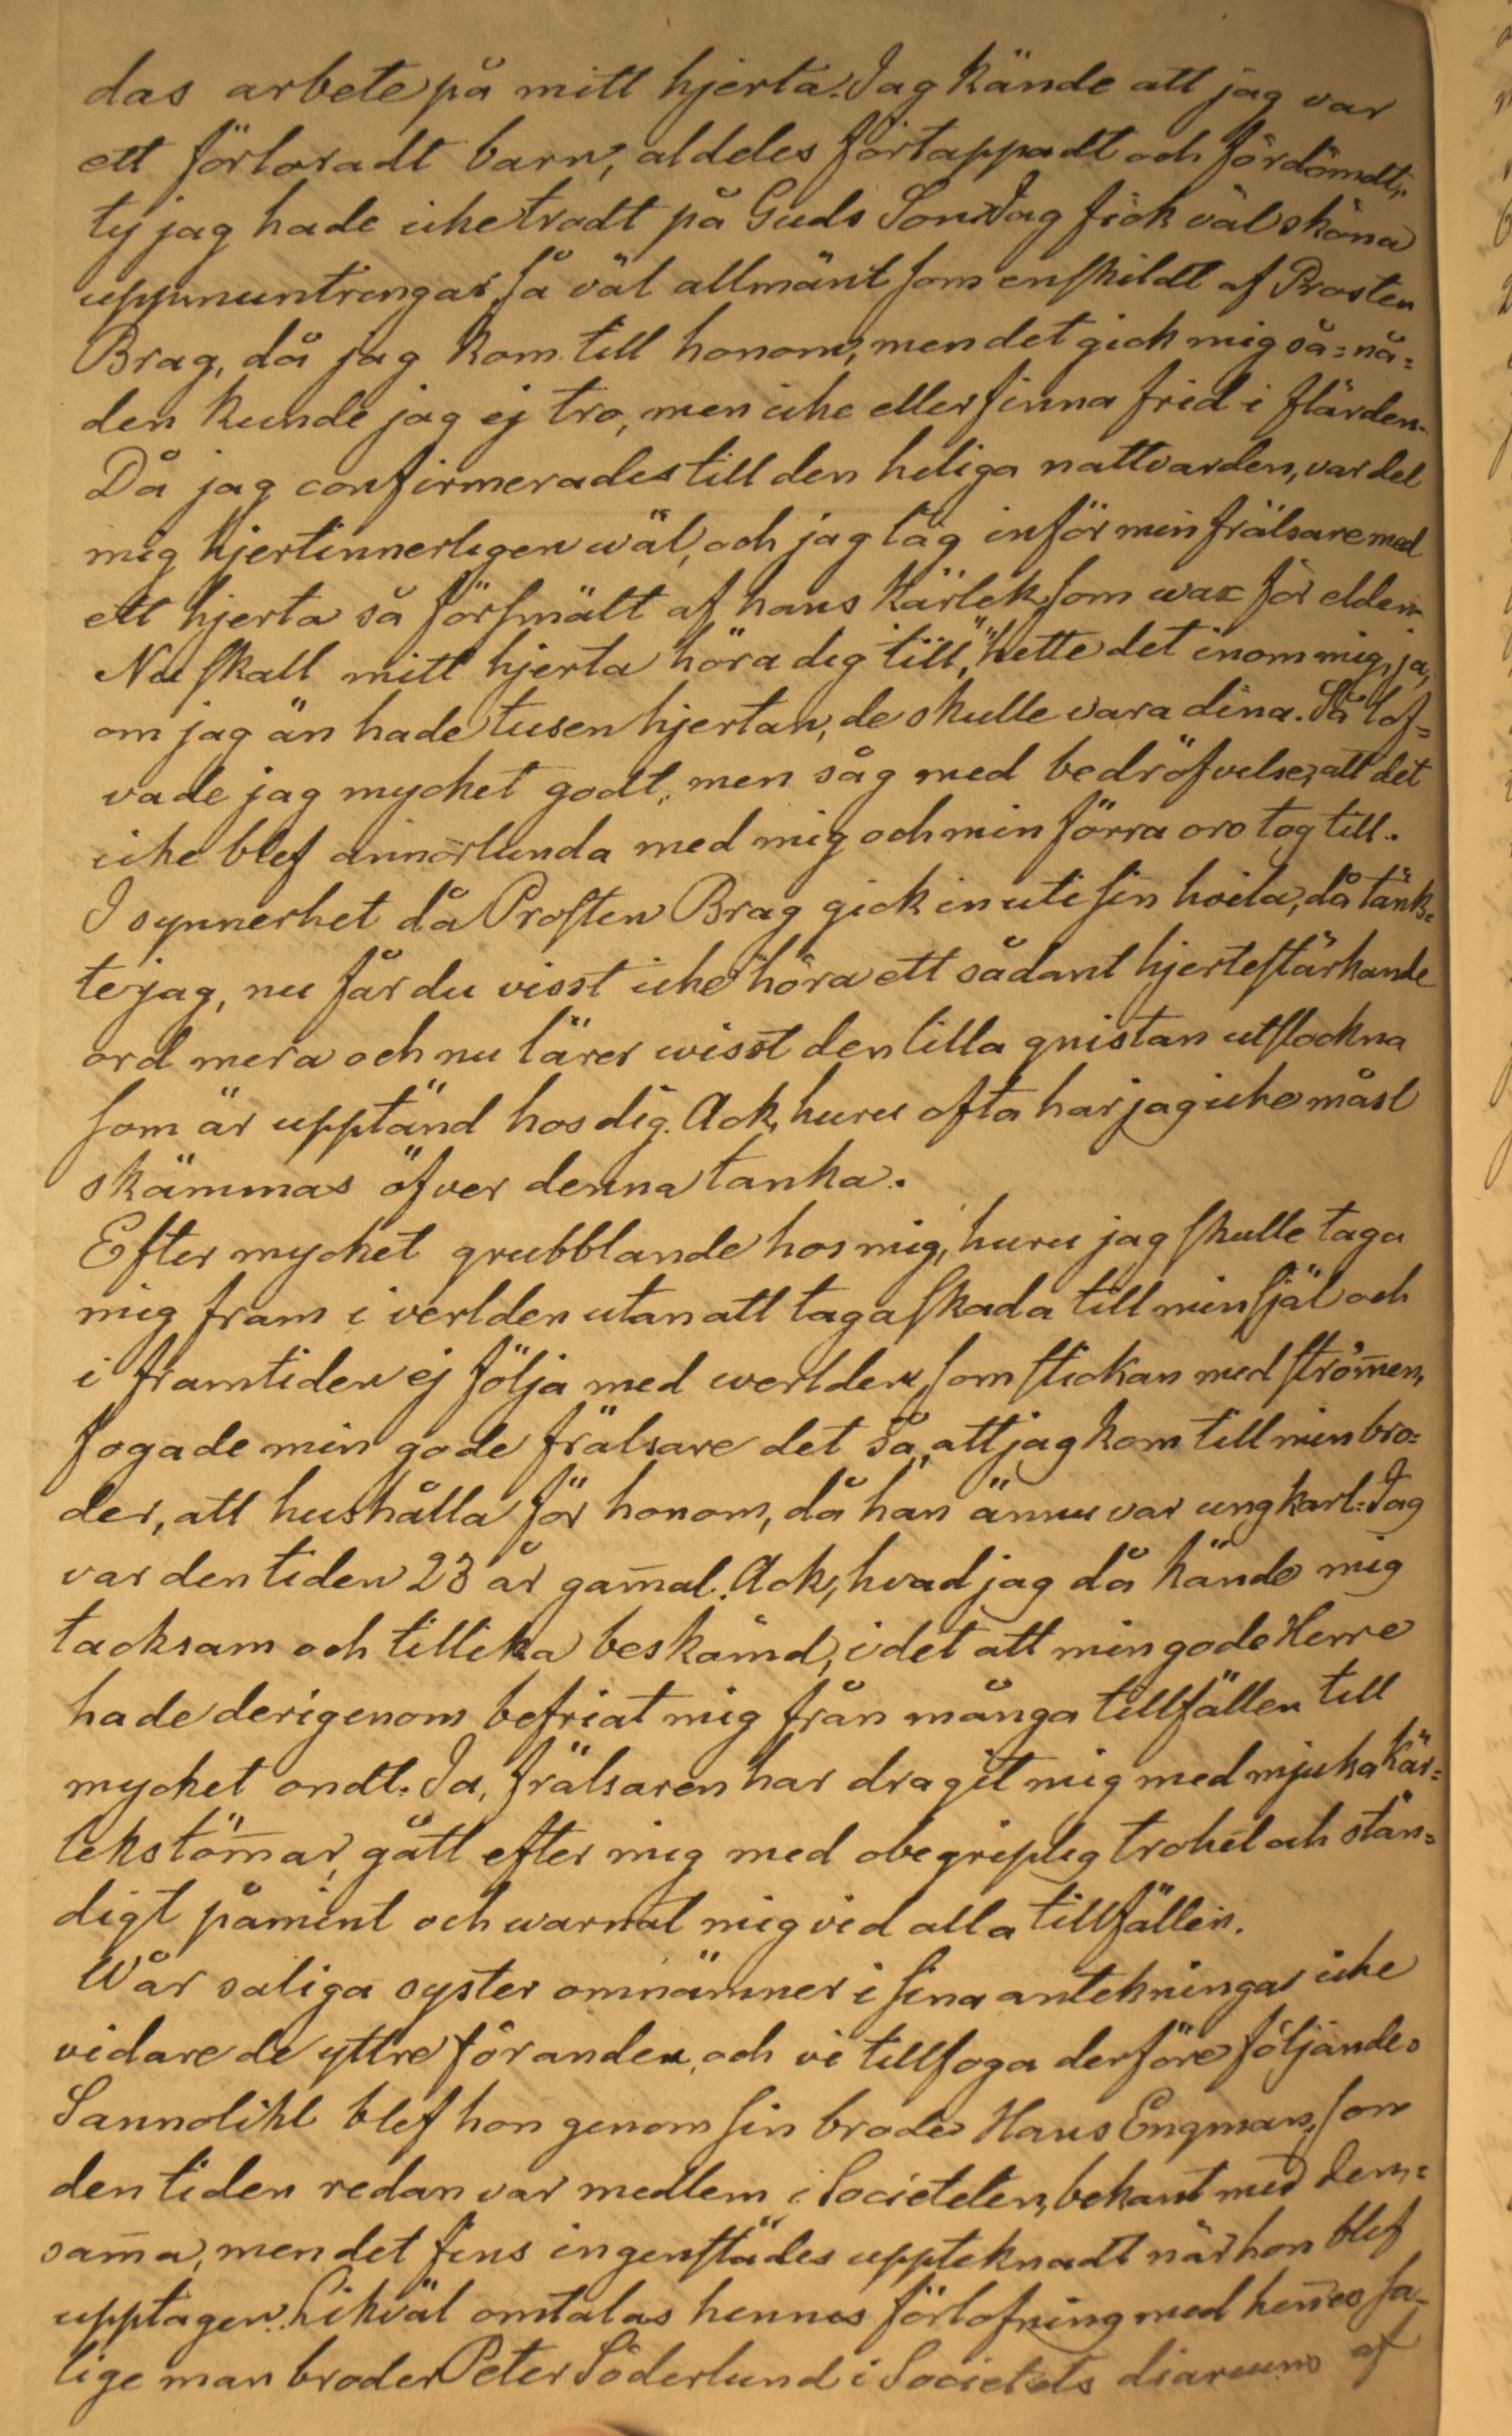 das arbete på mitt hjerta. Jag kände att jag var
ett förloradt barn, aldeles förtappadt och fördömdt,
ty jag hade icke trodt på Guds Son. Jag fick väl sköna
uppmuntringar så väl allmänt som enskildt af Prosten
Brag, då jag kom till honom, men det gick mig så = nå=
den kunde jag ej tro, men icke eller finna frid i flärden.
Då jag confirmerades till den heliga nattvarden, var det
mig hjertinnerligen wäl, och jag låg inför min frälsare med
ett hjerta så försmält af hans kärlek som wax för elden
Nu skall mitt hjerta höra dig till," hette det inom mig, ja,
om jag än hade tusen hjertan, de skulle vara dina. Så lof=
vade jag mycket godt, men såg med bedröfvelse, att det
icke blef annorlunda med mig och min förra oro tog till.
I synnerhet då Prosten Brag gick in uti sin hvila, då tänk=
te jag, nu får du visst icke höra ett sådant hjertestärkande
ord mera och nu lärer wisst den lilla gnistan utslockna
som är upptänd hos dig. Ack, huru ofta har jag icke måst
skämmas öfver denna tanka.
Efter mycket grubblande hos mig, huru jag skulle taga
mig fram i verlden utan att taga skada till min själ och
i framtiden ej följa med werlden, som stickan med strömen,
fogade min gode frälsare det så, att jag kom till min bro=
der, att hushålla för honom, då han ännu var ungkarl. Jag
var den tiden 23 år gam̅al. Ack, hvad jag då kände mig
tacksam och tillika beskämd, i det att min gode Herre
hade derigenom befriat mig från många tillfällen till
mycket ondt. Ja, frälsaren har dragit mig med mjuka kär=
lekstöm̅ar, gått efter mig med obegriplig trohet och stän=
digt påmint och warnat mig vid alla tillfällen.
Wår saliga syster omnämner i sina antekningar icke
vidare de yttre föranden, och vi tillfoga derföre följande.
Sannolikt blef hon genom sin broder Hans Engman, som
den tiden redan var medlem i Societeten, bekant med den=
sam̅a, men det fins ingenstädes uppteknadt när hon blef
upptagen. Likväl omtalas hennes förlofning med hen̅es sa=
lige man broder Peter Söderlund i Societets diarium af